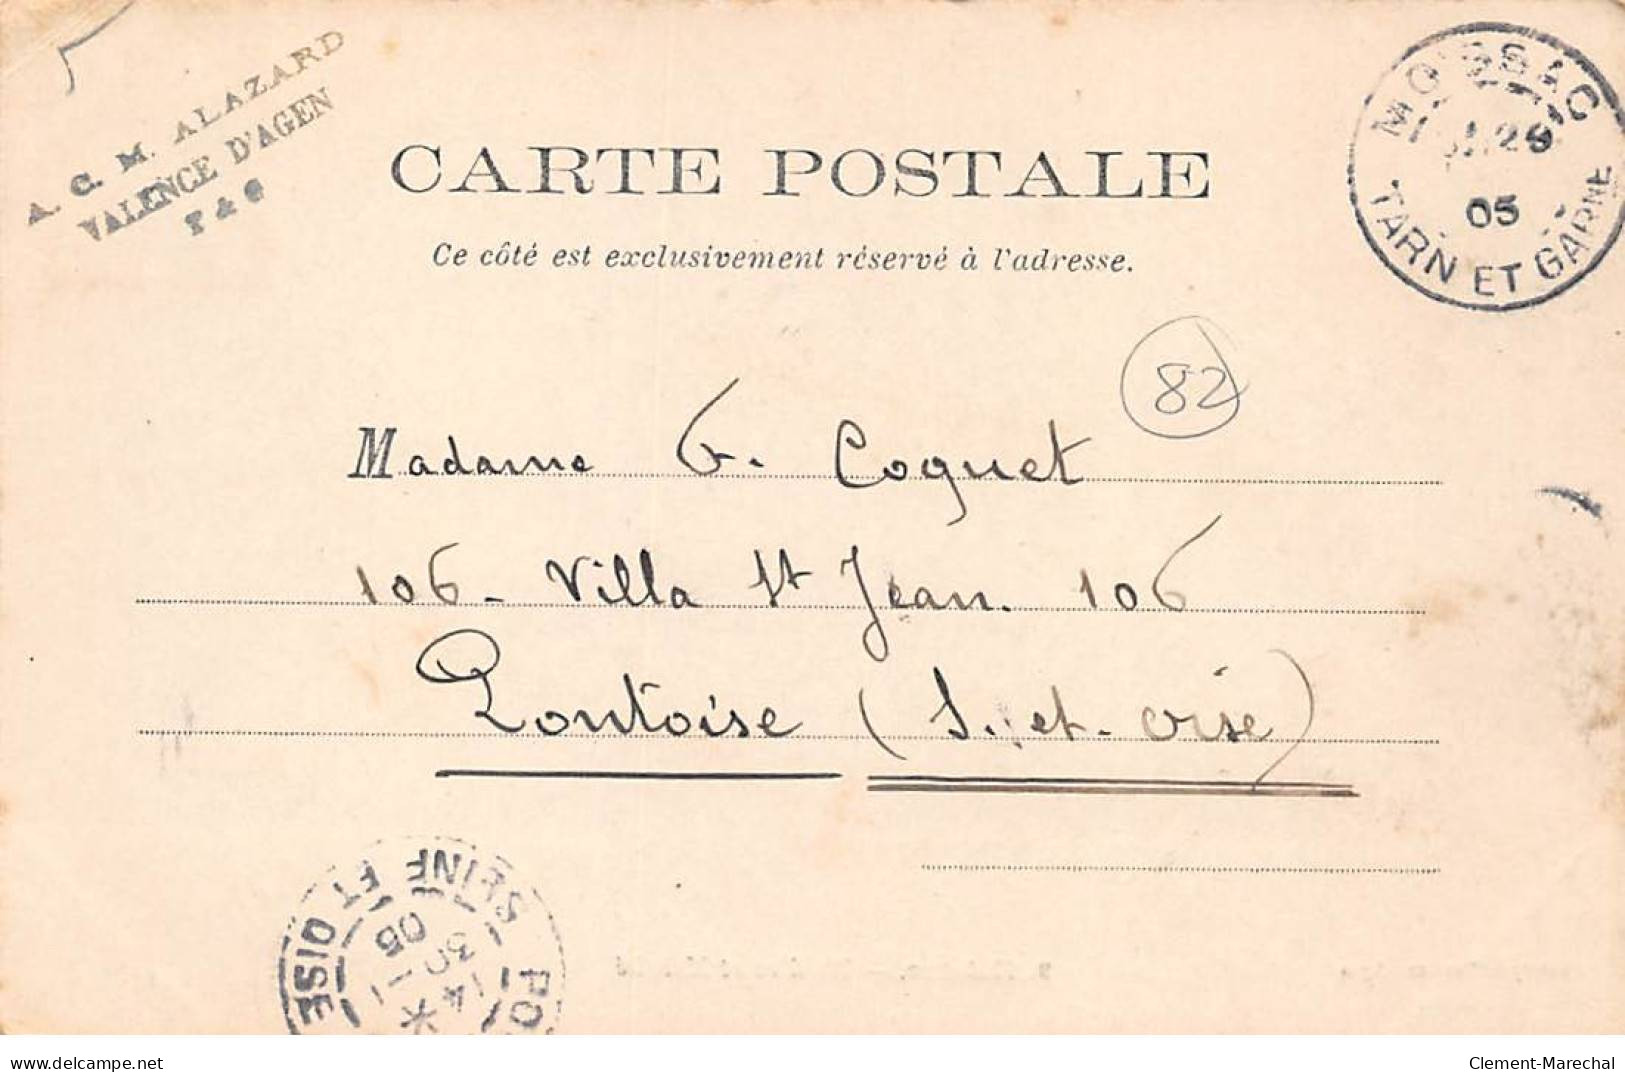 A. C. M. ALAZARD
VALENCE D'AGEN
T & G
CARTE POSTALE
Ce côté est exclusivement réservé à l'adresse.
MOISSAC
29
05
TARN ET GARNE
82
Madame G. Coquet
106 - Villa St Jean. 106
Pontoise (S. et. Oise)
SEINE ET OISE
PO
14
30 1
05
www.delcampe.net
Clement-Marechal